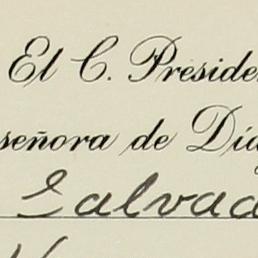 El C. Preside
señora de Día
Salvad